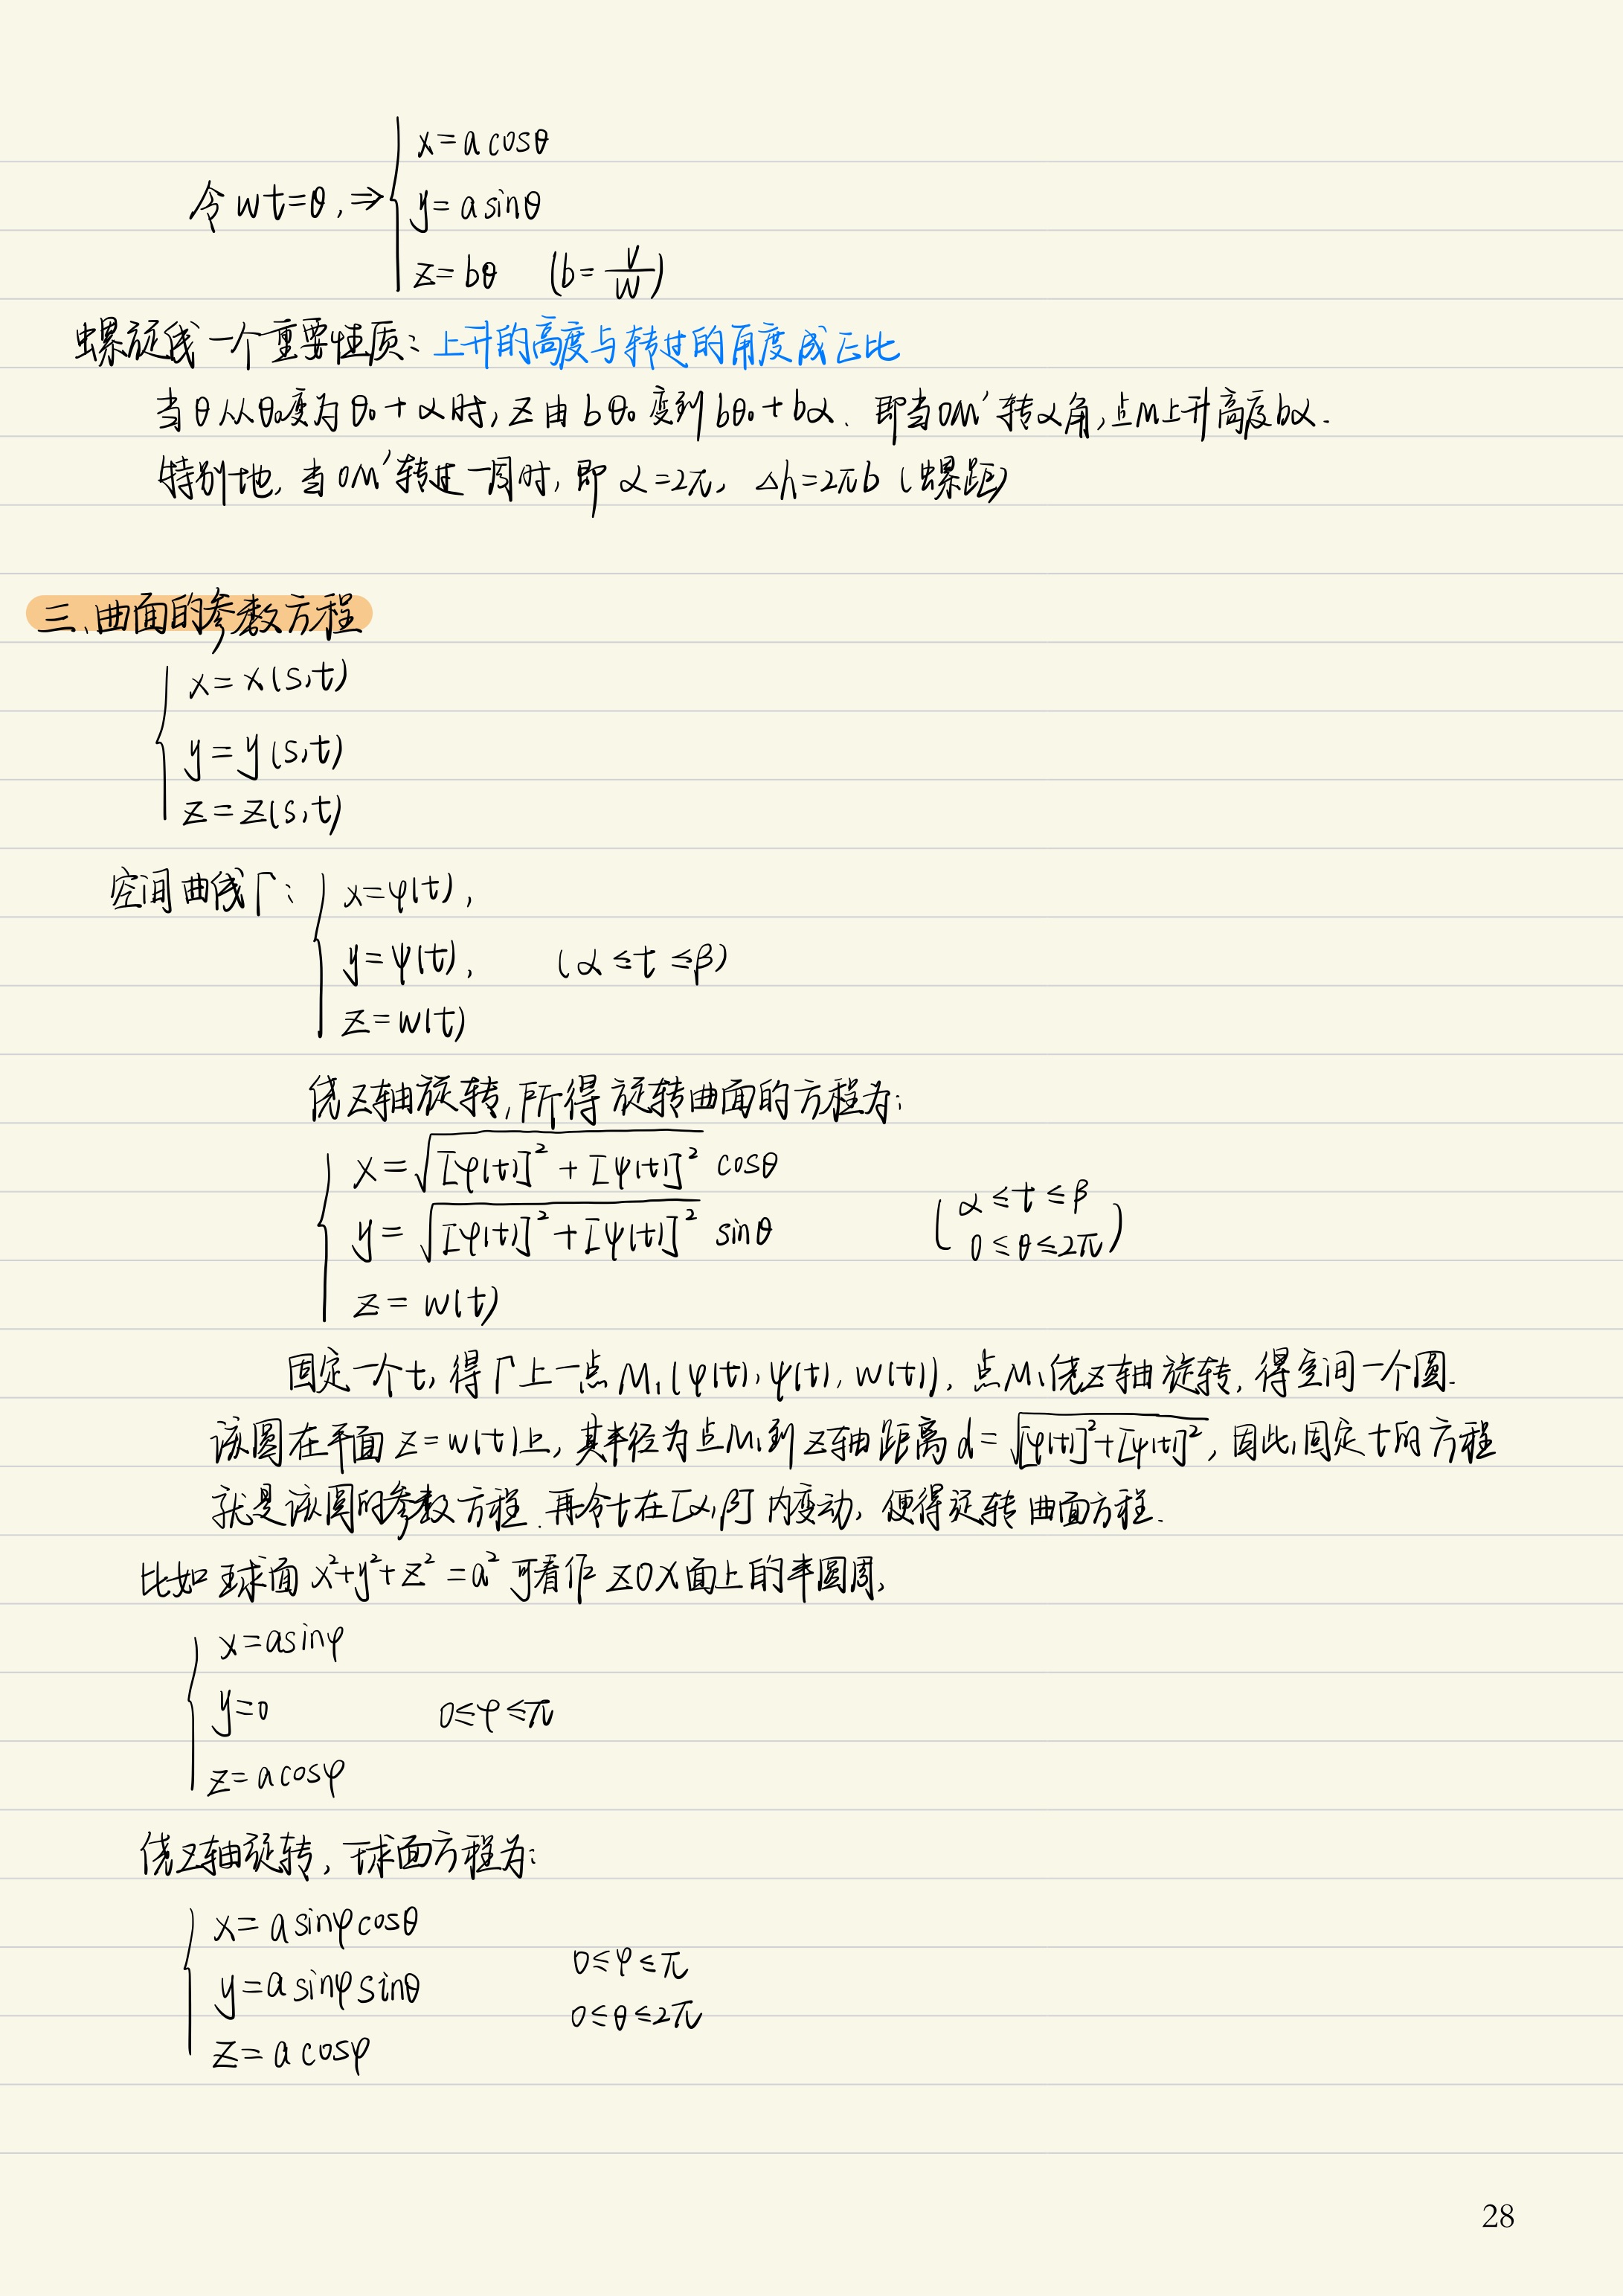 x=acosθ
令wt=θ,⇒ y=asinθ
z=bθ (b=v/w)
螺旋线一个重要性质:上升的高度与转过的角度成正比
当θ从θ₀变为θ₀+α时,z由bθ₀变到bθ₀+bα.即当OM'转α角,点M上升高度bα.
特别地,当OM'转过一周时,即α=2π,△h=2πb(螺距)
三、曲面的参数方程
x=x(s,t)
y=y(s,t)
z=z(s,t)
空间曲线Γ: x=φ(t),
y=ψ(t), (α≤t≤β)
z=w(t)
绕z轴旋转,所得旋转曲面的方程为:
x=√([φ(t)]²+[ψ(t)]²) cosθ
y=√([φ(t)]²+[ψ(t)]²) sinθ (α≤t≤β 0≤θ≤2π)
z=w(t)
固定一个t,得Γ上一点M₁(φ(t),ψ(t),w(t)),点M₁绕z轴旋转,得空间一个圆.
该圆在平面z=w(t)上,其半径为点M₁到z轴距离d=√([φ(t)]²+[ψ(t)]²),因此,固定t的方程
就是该圆的参数方程.再令t在[α,β]内变动,便得旋转曲面方程.
比如球面x²+y²+z²=a²可看作zOx面上的半圆周,
x=asinφ
y=0 0≤φ≤π
z=acosφ
绕z轴旋转,球面方程为:
x=asinφcosθ
0≤φ≤π
y=asinφsinθ
0≤θ≤2π
z=acosφ
28